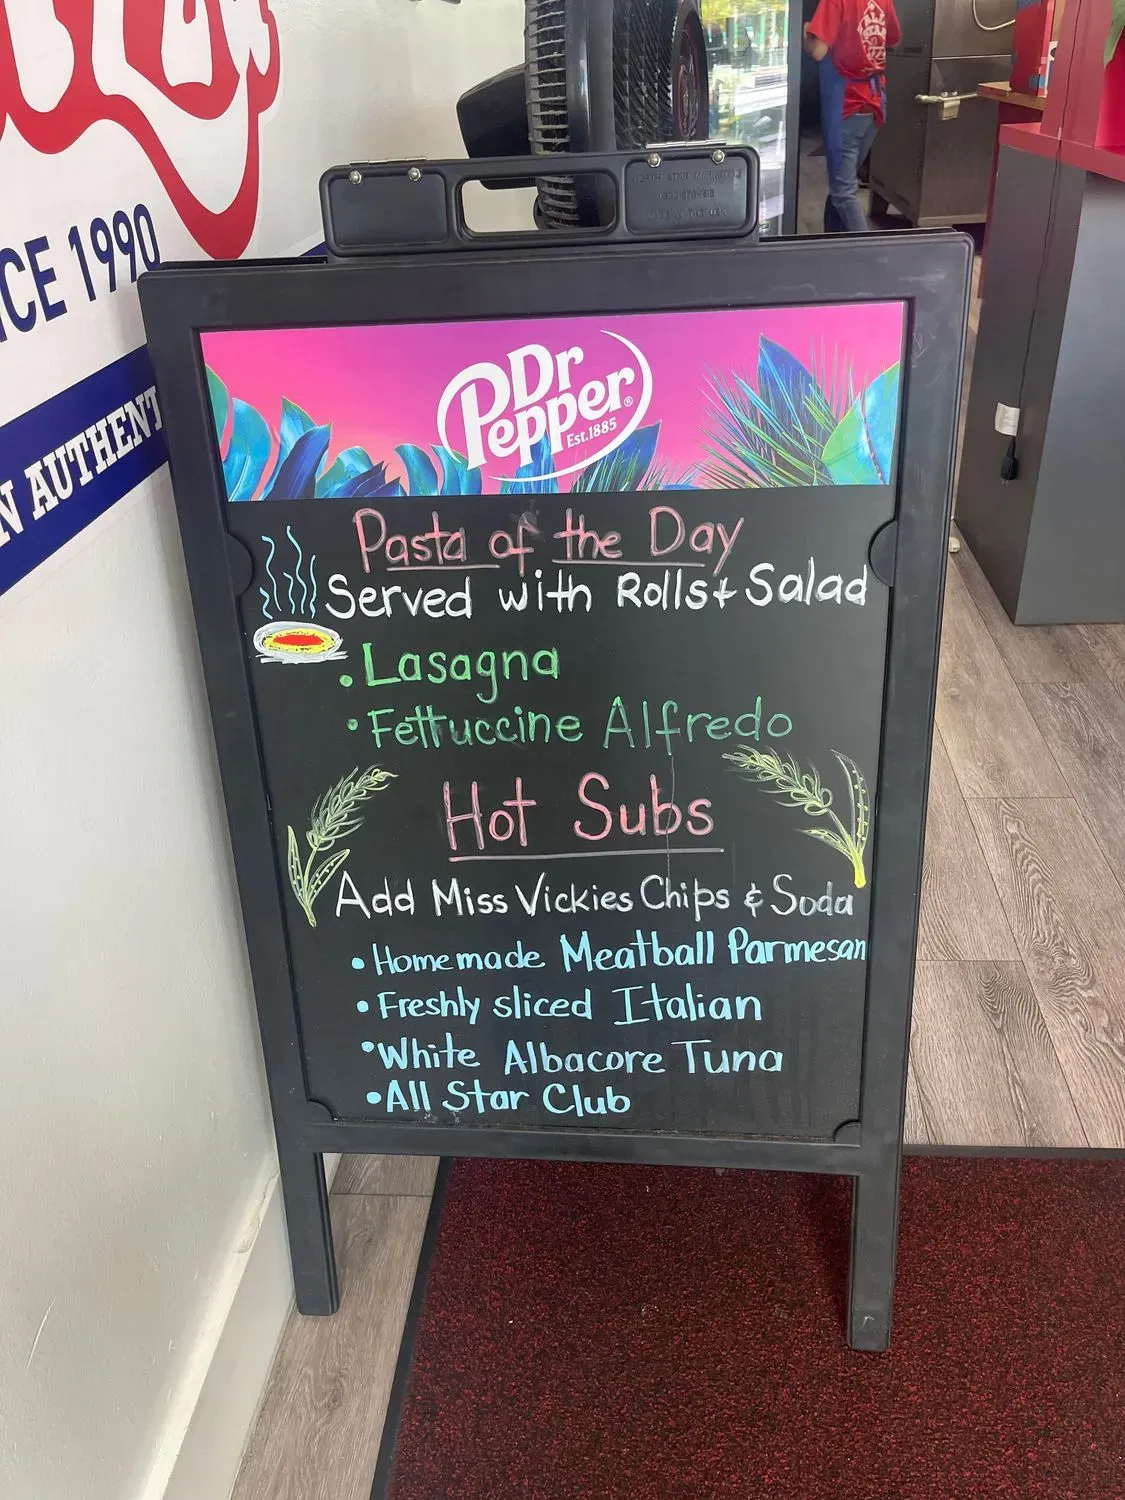 CE 1990
N AUTHENT
Dr
Pepper®
Est.1885
Pasta of the Day
Served with Rolls & Salad
• Lasagna
• Fettuccine Alfredo
Hot Subs
Add Miss Vickies Chips & Soda
• Homemade Meatball Parmesan
• Freshly sliced Italian
• White Albacore Tuna
• All Star Club